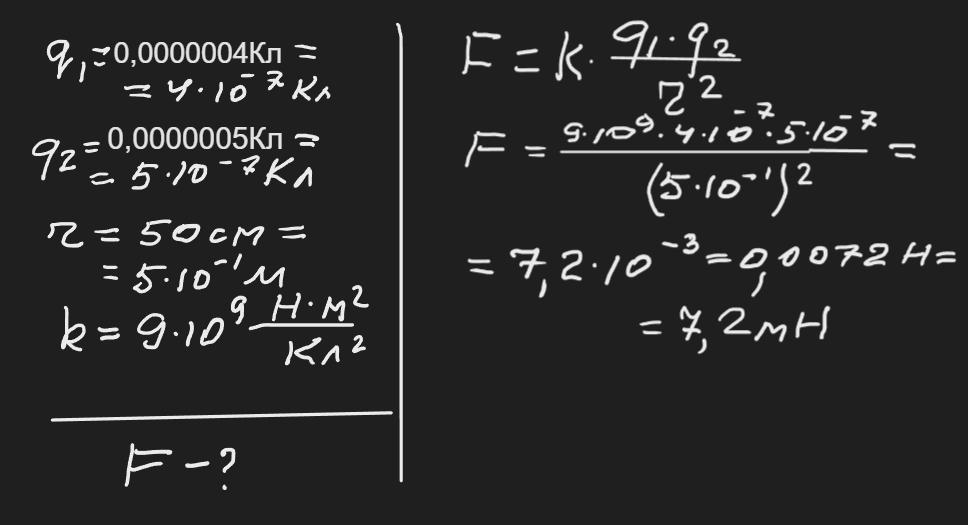 q₁ = 0,0000004Кл =
= 4·10⁻⁷ Кл
q₂ = 0,0000005Кл =
= 5·10⁻⁷ Кл
r = 50 см =
= 5·10⁻¹ м
k = 9·10⁹ Н·м²/Кл²
F - ?
F = k · q₁·q₂/r²
F = 9·10⁹·4·10⁻⁷·5·10⁻⁷/(5·10⁻¹)² =
= 7,2·10⁻³ = 0,0072 Н =
= 7,2 мН